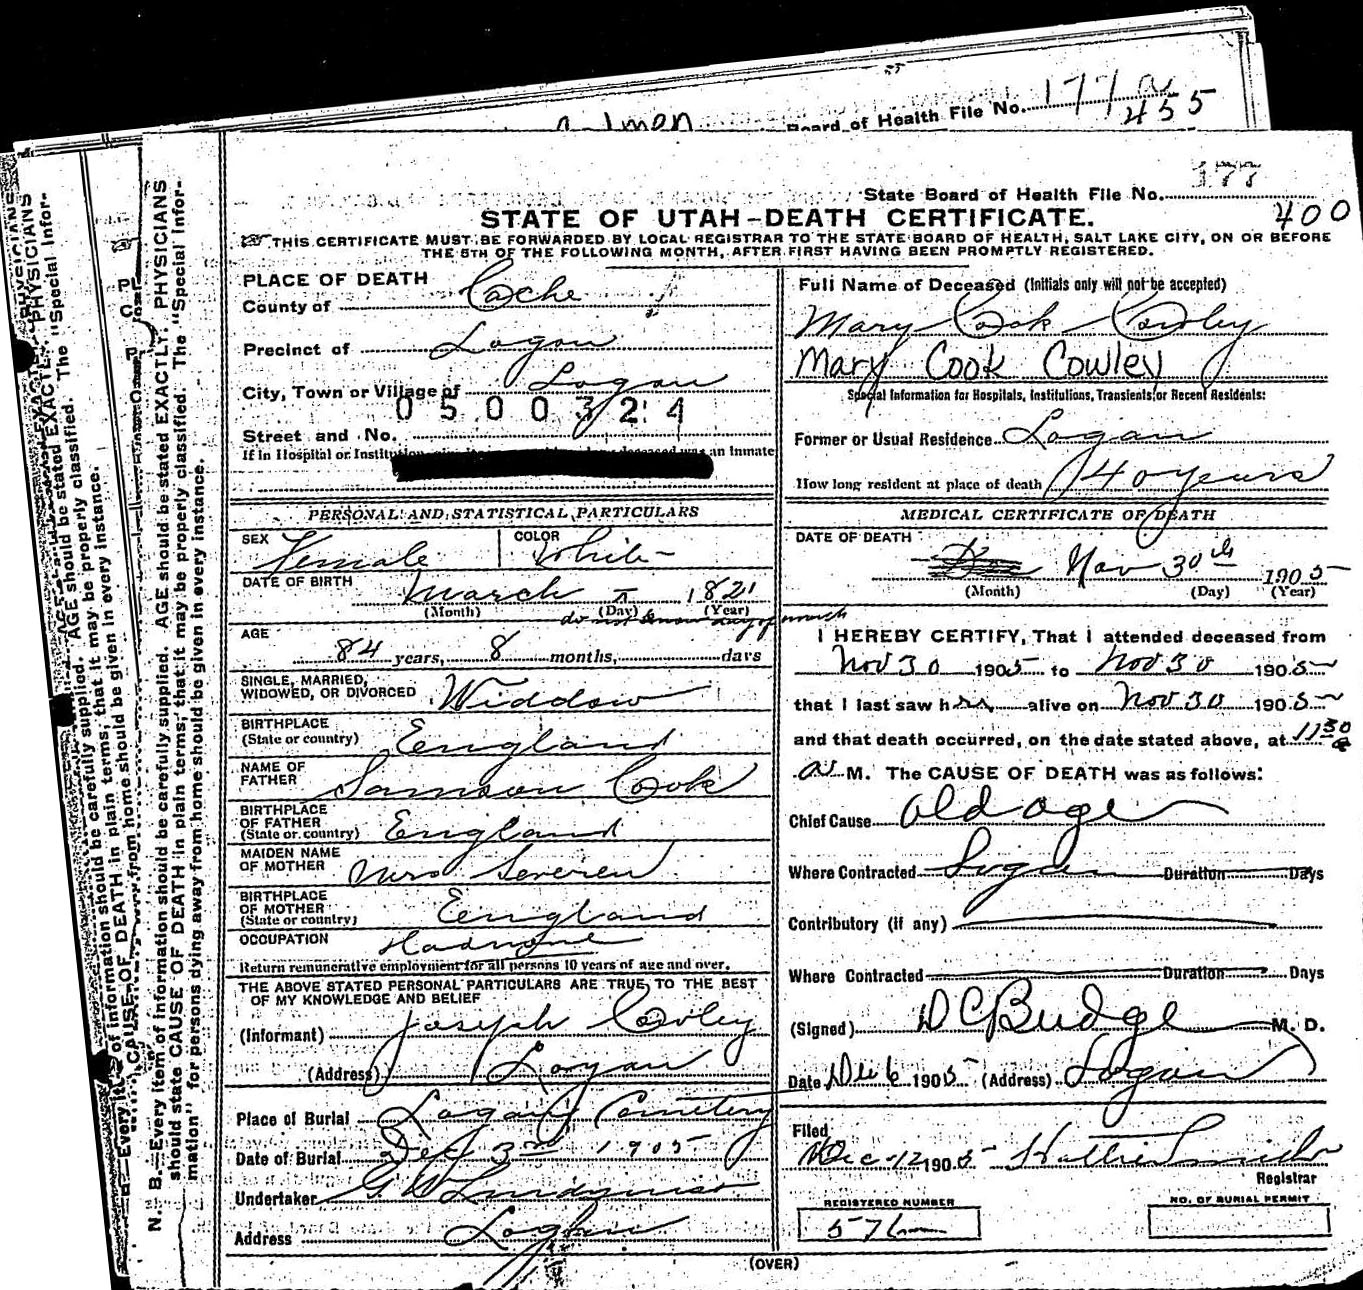 Board of Health File No. 177
455
177
State Board of Health File No.
400
STATE OF UTAH-DEATH CERTIFICATE.
THIS CERTIFICATE MUST BE FORWARDED BY LOCAL REGISTRAR TO THE STATE BOARD OF HEALTH, SALT LAKE CITY, ON OR BEFORE
THE 5TH OF THE FOLLOWING MONTH, AFTER FIRST HAVING BEEN PROMPTLY REGISTERED.
PLACE OF DEATH
County of Cache
Precinct of Logan
City, Town or Village of Logan
0500324
Street and No.
If in Hospital or Institution an inmate
PERSONAL AND STATISTICAL PARTICULARS
SEX Female COLOR White
DATE OF BIRTH March 1821
(Month) (Day) (Year)
do not know day of month
AGE 84 years, 8 months, days
SINGLE, MARRIED,
WIDOWED, OR DIVORCED Widdow
BIRTHPLACE
(State or country) England
NAME OF
FATHER Samson Cook
BIRTHPLACE
OF FATHER
(State or country) England
MAIDEN NAME
OF MOTHER
BIRTHPLACE
OF MOTHER
(State or country) England
OCCUPATION
Return remunerative employment for all persons 10 years of age and over.
THE ABOVE STATED PERSONAL PARTICULARS ARE TRUE TO THE BEST
OF MY KNOWLEDGE AND BELIEF
(Informant) Joseph Cowley
(Address) Logan
Place of Burial Logan Cemetery
Date of Burial 3rd 1905
Undertaker
Address Logan
Full Name of Deceased (Initials only will not be accepted)
Mary Cook Cowley
Mary Cook Cowley
Special Information for Hospitals, Institutions, Transients or Recent Residents:
Former or Usual Residence Logan
How long resident at place of death 40 years
MEDICAL CERTIFICATE OF DEATH
DATE OF DEATH
Nov 30th 1905
(Month) (Day) (Year)
I HEREBY CERTIFY, That I attended deceased from
Nov 30 1905 to Nov 30 1905
that I last saw her alive on Nov 30 1905
and that death occurred, on the date stated above, at 1130
a M. The CAUSE OF DEATH was as follows:
Chief Cause Old age
Where Contracted Logan Duration Days
Contributory (if any)
Where Contracted Duration Days
(Signed) D C Budge M. D.
Date Dec 6 1905 (Address) Logan
Filed
Dec 12 1905 Hattie Smith
Registrar
REGISTERED NUMBER
576
NO. OF BURIAL PERMIT
(OVER)
N. B.—Every item of information should be carefully supplied. AGE should be stated EXACTLY. PHYSICIANS
should state CAUSE OF DEATH in plain terms, that it may be properly classified. The "Special Infor-
mation" for persons dying away from home should be given in every instance.